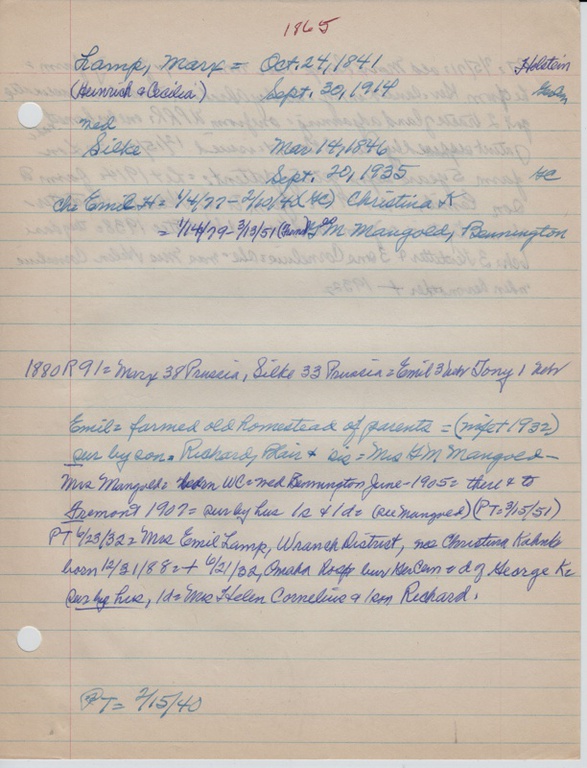 1865
Lamp, Marx = Oct. 24, 1841 Holstein
(Heinrich & Cecilia) Sept. 30, 1914
ned
Silke Mar 14, 1846
Sept. 20, 1935 GC
Ch = Emil H = 1/4/77 - 2/10/40 (GC) Christina K
= 1/14/79 - 3/13/51 G M Mangold, Bennington
1880 R 91 = Marx 38 Prussia, Silke 33 Prussia = Emil 3 Nebr Tony 1 Nebr
Emil = farmed old homestead of parents = (wife + 1932)
sur by son = Richard, Blair & sis = Mrs G M Mangold -
Mrs Mangold = born WC = ned Bennington June - 1905 = there & to
Fremont 1907 = sur by hus 1s & 1d = (see Mangold) (PT = 3/15/51)
PT 6/23/32 = Mrs Emil Lamp, District, nee Christina
born 12/31/88 = + 6/21/32, Omaha Hosp bur Cem = d of George K
sur by hus, 1d = Mrs Helen Cornelius & 1son Richard.
PT = 2/15/40